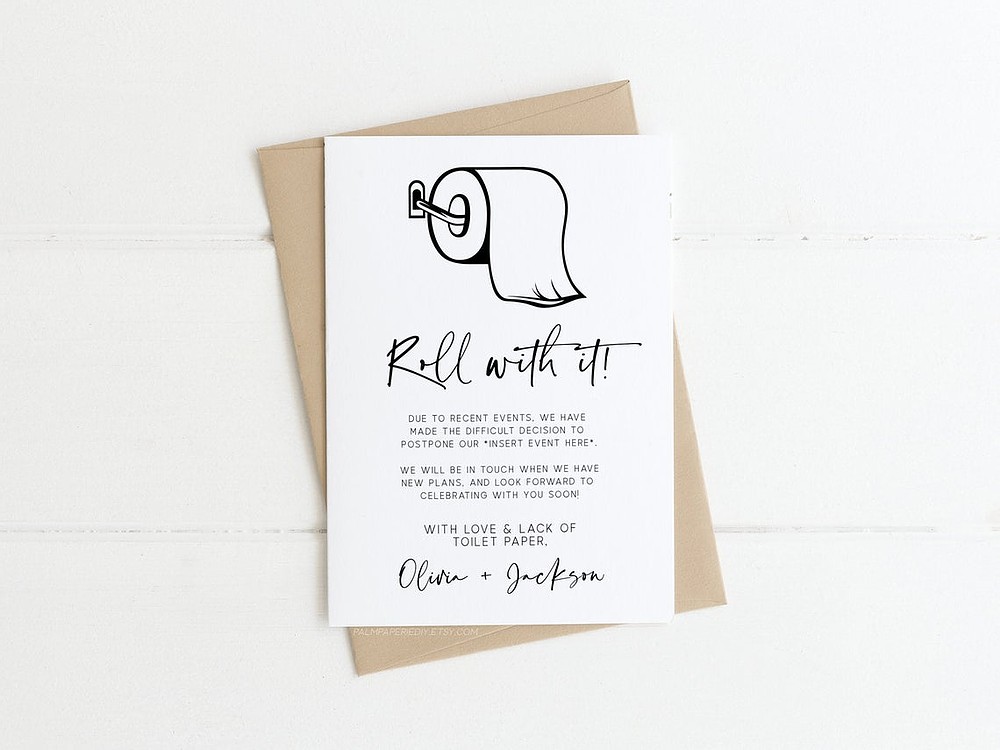 Roll with it!
DUE TO RECENT EVENTS, WE HAVE
MADE THE DIFFICULT DECISION TO
POSTPONE OUR *INSERT EVENT HERE*.
WE WILL BE IN TOUCH WHEN WE HAVE
NEW PLANS, AND LOOK FORWARD TO
CELEBRATING WITH YOU SOON!
WITH LOVE & LACK OF
TOILET PAPER,
Olivia + Jackson
PALMPAPERIEDIY.ETSY.COM